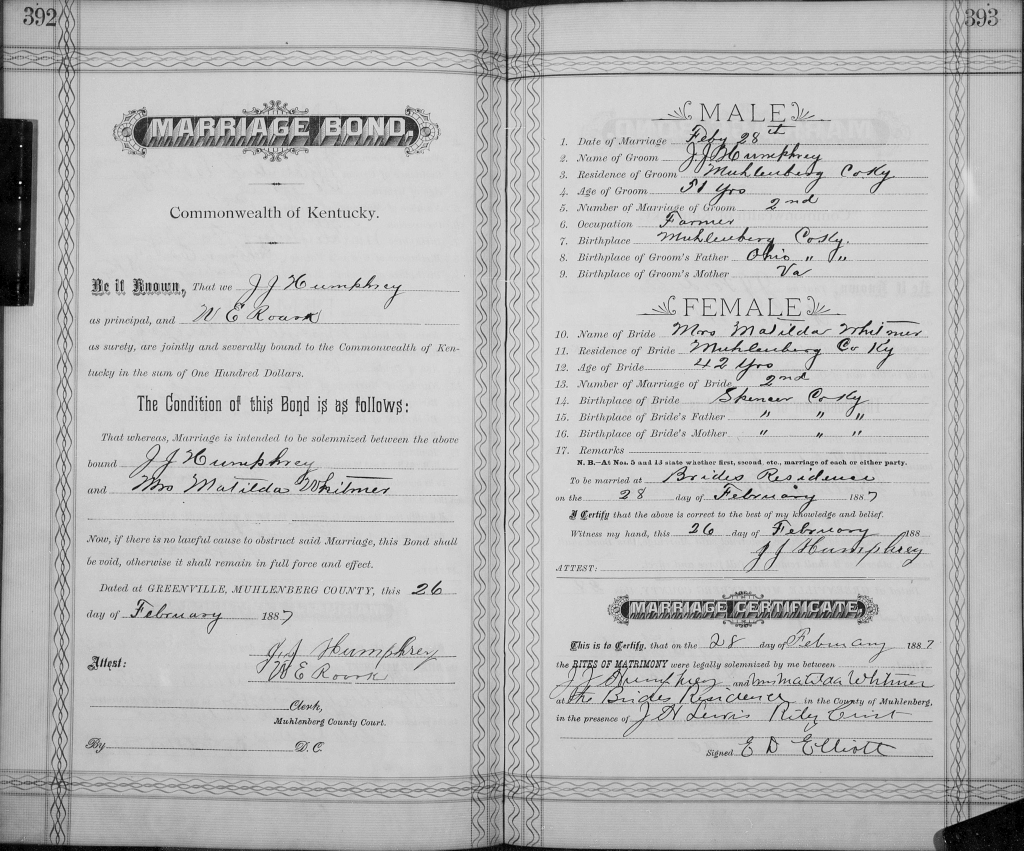 392
MARRIAGE BOND,
Commonwealth of Kentucky.
Be it Known, That we J J Humphrey
as principal, and W E Roark
as surety, are jointly and severally bound to the Commonwealth of Ken-
tucky in the sum of One Hundred Dollars.
The Condition of this Bond is as follows:
That whereas, Marriage is intended to be solemnized between the above
bound J J Humphrey
and Mrs Matilda Whitmer
Now, if there is no lawful cause to obstruct said Marriage, this Bond shall
be void, otherwise it shall remain in full force and effect.
Dated at GREENVILLE, MUHLENBERG COUNTY, this 26
day of February 1887
J J Humphrey
Attest:
W E Roark
Clerk,
Muhlenberg County Court.
By D. C.
393
MALE
1. Date of Marriage Feby 28th
2. Name of Groom J J Humphrey
3. Residence of Groom Muhlenberg Co Ky
4. Age of Groom 51 yrs
5. Number of Marriage of Groom 2nd
6. Occupation Farmer
7. Birthplace Muhlenberg Co Ky.
8. Birthplace of Groom's Father Ohio " "
9. Birthplace of Groom's Mother Va
FEMALE
10. Name of Bride Mrs Matilda Whitmer
11. Residence of Bride Muhlenberg Co Ky
12. Age of Bride 42 yrs
13. Number of Marriage of Bride 2nd
14. Birthplace of Bride Spencer Co Ky
15. Birthplace of Bride's Father " " "
16. Birthplace of Bride's Mother " " "
17. Remarks
N. B.—At Nos. 5 and 13 state whether first, second, etc., marriage of each or either party.
To be married at Brides Residence
on the 28 day of February 1887
I Certify that the above is correct to the best of my knowledge and belief.
Witness my hand, this 26 day of February 188
J J Humphrey
ATTEST:
MARRIAGE CERTIFICATE,
This is to Certify, that on the 28 day of February 1887
the RITES OF MATRIMONY were legally solemnized by me between
J J Humphrey and Mrs Matilda Whitmer
at the Brides Residence in the County of Muhlenberg,
in the presence of J Lewis Riley
Signed E D Elliott